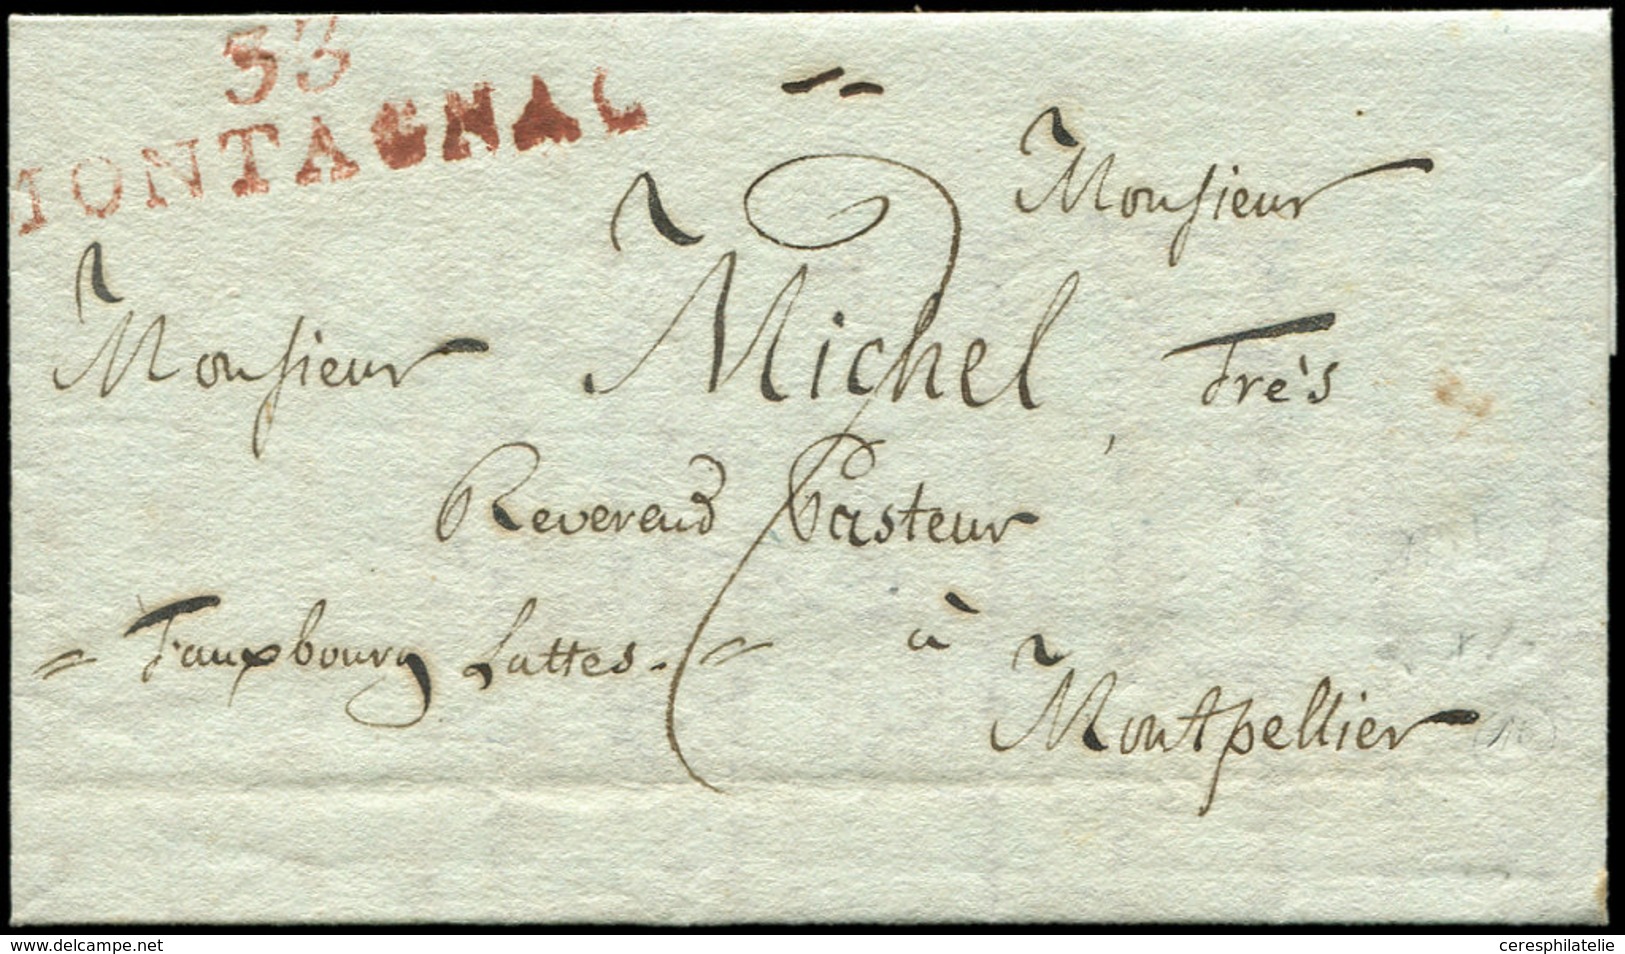 33
MONTAGNAC
Monsieur
Monsieur Michel Très
Reverend Pasteur
= Fauxbourg Lattes. = à
Montpellier
www.delcampe.net
ceresphilatelie